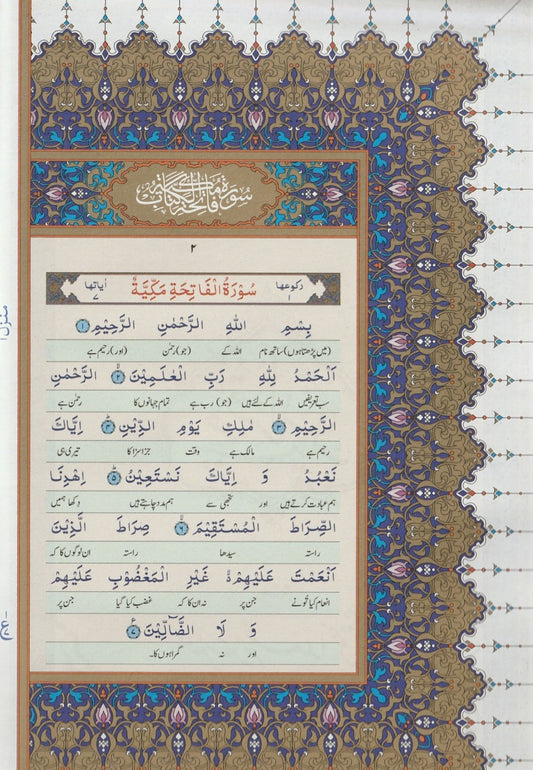 سورة فاتحة الكتاب مكية
۲
رکوعها ۱ سُوْرَةُ الْفَاتِحَةِ مَكِّيَّةٌ اٰياتها ۷
بِسْمِ اللهِ الرَّحْمٰنِ الرَّحِيْمِ ۱
(میں پڑھتا ہوں) ساتھ نام اللہ کے (جو) رحمٰن (اور) رحیم ہے
اَلْحَمْدُ لِلّٰهِ رَبِّ الْعٰلَمِيْنَ ۲ الرَّحْمٰنِ
سب تعریفیں اللہ کے لئے ہیں (جو) رب ہے تمام جہانوں کا رحمٰن ہے
الرَّحِيْمِ ۳ مٰلِكِ يَوْمِ الدِّيْنِ ۴ اِيَّاكَ
رحیم ہے مالک ہے وقت جزا سزا کا تیری ہی
نَعْبُدُ وَ اِيَّاكَ نَسْتَعِيْنُ ۵ اِهْدِنَا
ہم عبادت کرتے ہیں اور تجھی سے ہم مدد چاہتے ہیں دکھا ہمیں
الصِّرَاطَ الْمُسْتَقِيْمَ ۶ صِرَاطَ الَّذِيْنَ
راستہ سیدھا راستہ ان لوگوں کا کہ
اَنْعَمْتَ عَلَيْهِمْ غَيْرِ الْمَغْضُوْبِ عَلَيْهِمْ
انعام کیا تو نے جن پر نہ ان کا کہ غضب کیا گیا جن پر
وَ لَا الضَّآلِّيْنَ ۷
اور نہ گمراہوں کا۔
منزل ۱